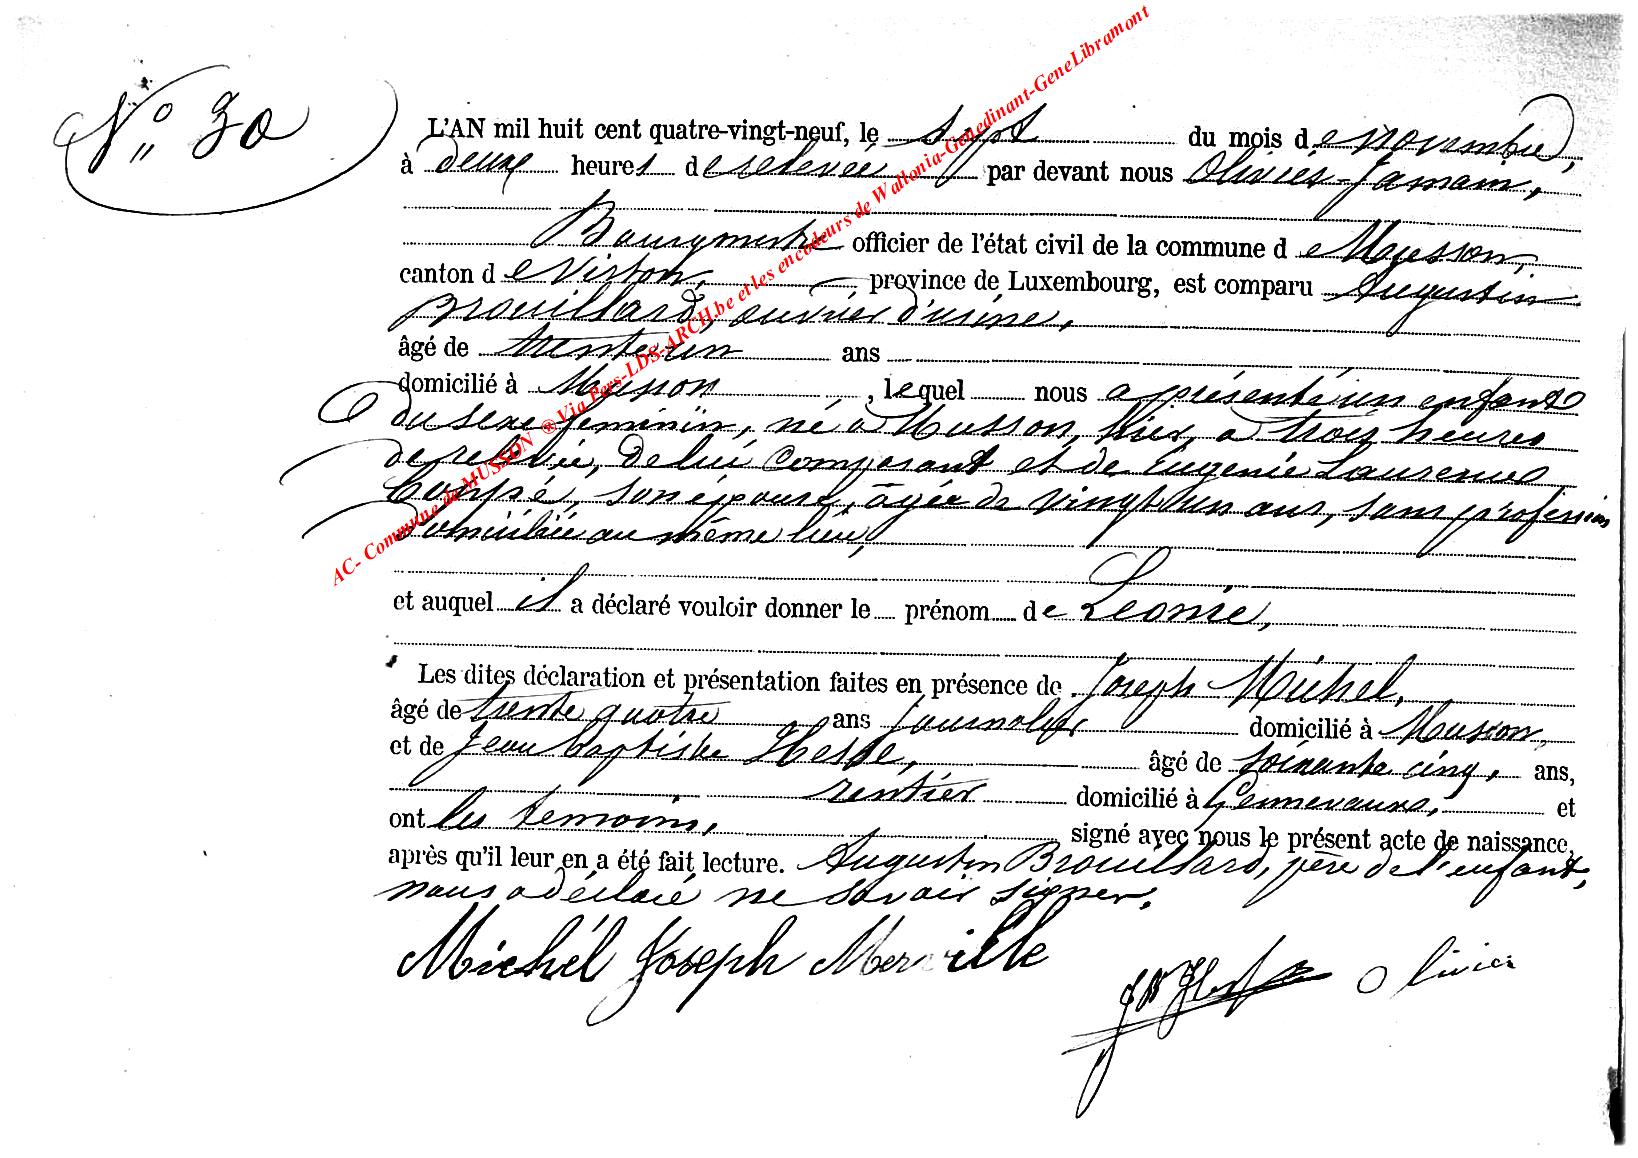 N° 30
L'AN mil huit cent quatre-vingt-neuf, le sept du mois de novembre,
à deux heures de relevée par devant nous Olivier-Jamain,
Bourgmestre officier de l'état civil de la commune de Musson,
canton de Virton, province de Luxembourg, est comparu Augustin
Brouillard, ouvrier d'usine,
âgé de trente un ans
domicilié à Musson, lequel nous a présenté un enfant
du sexe feminin, né à Musson, hier, à trois heures
de relevée, de lui comparant et de Eugenie Laurence
son épouse, âgée de vingt un ans, sans profession
domiciliée au même lieu,
et auquel il a déclaré vouloir donner le prénom de Léonie,
Les dites déclaration et présentation faites en présence de Joseph Michel,
âgé de trente quatre ans journalier domicilié à Musson,
et de Jean Baptiste âgé de soixante cinq, ans,
rentier domicilié à Gennevaux, et
ont les temoins, signé avec nous le présent acte de naissance,
après qu'il leur en a été fait lecture. Augustin Brouillard, père de l'enfant,
nous a déclaré ne savoir signer.
Michel Joseph Merville
Olivier
AC- Commune de MUSSON ® Via Pers-LDS-ARCH.be et les encodeurs de Wallonia-Genedinant-GeneLibramont